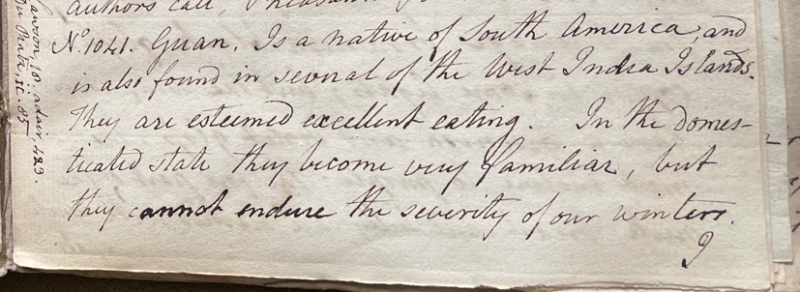 authors call, Pheasant
No. 1041. Guan, Is a native of South America, and
is also found in several of the West India Islands.
They are esteemed excellent eating. In the domes-
ticated state they become very familiar, but
they cannot endure the severity of our winters.
Lawson, 18: adair, 423.
Du Pratz, ii. 85